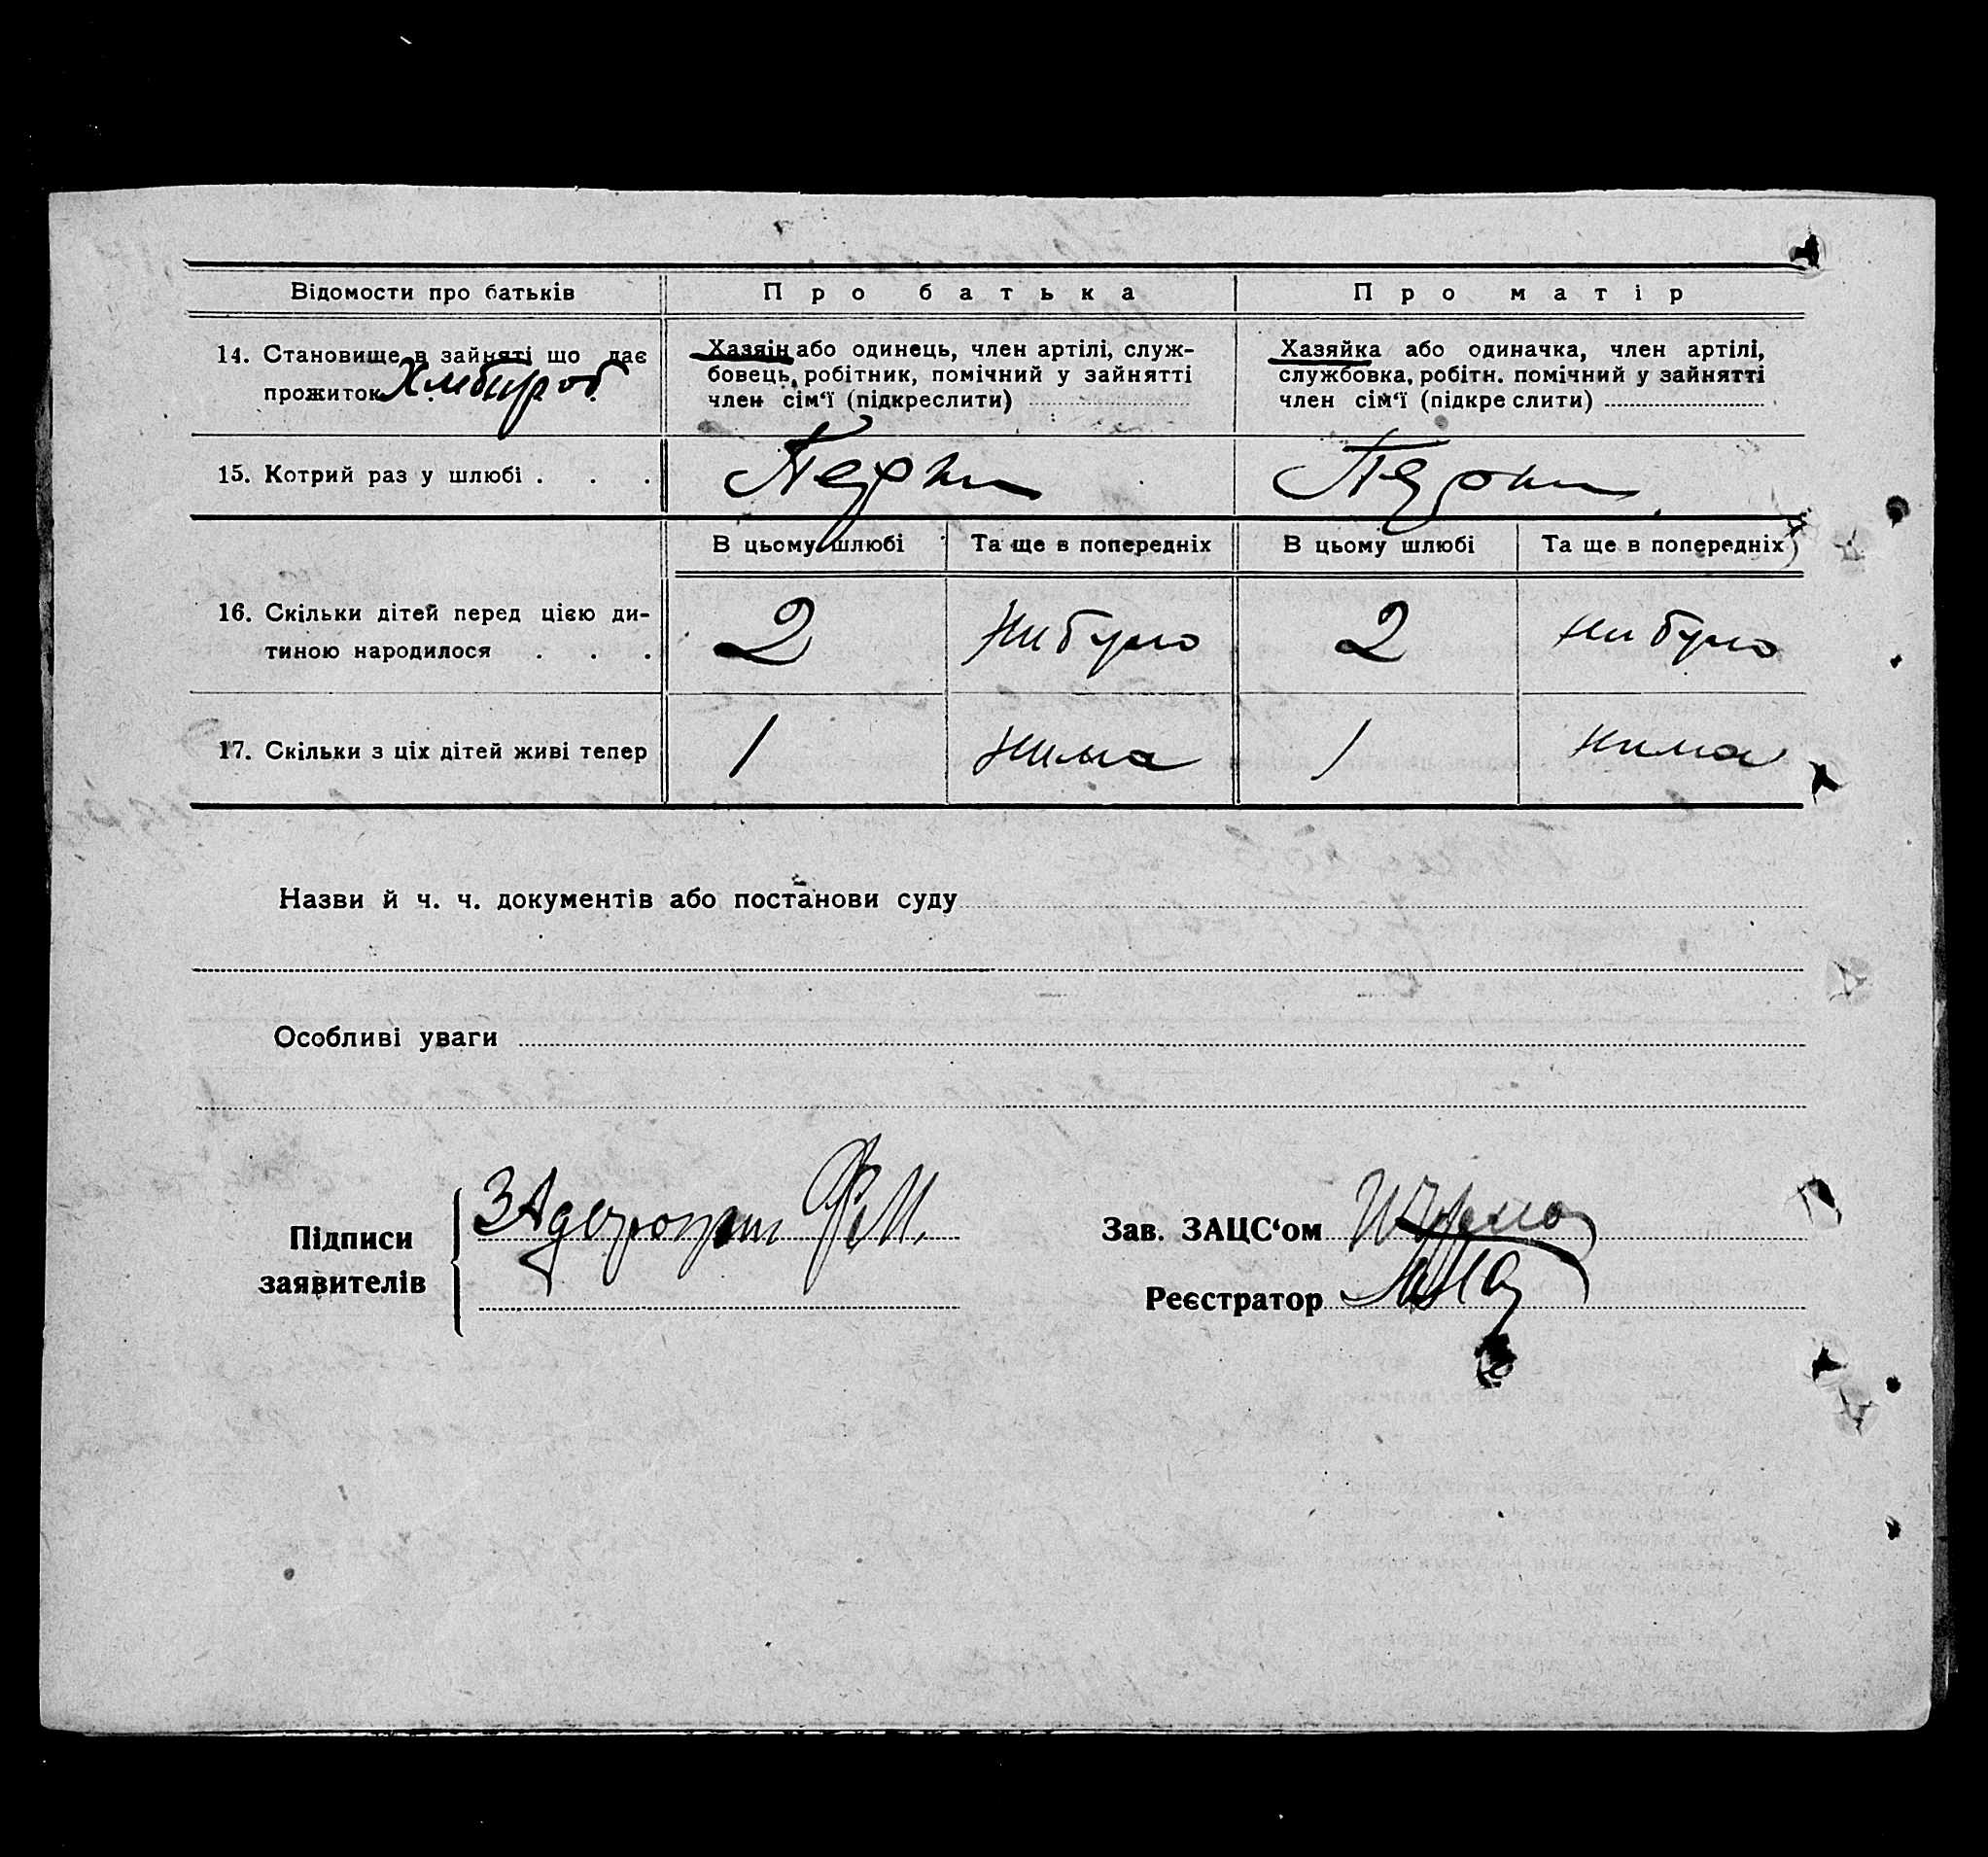 Відомости про батьків
Про батька
Про матір
14. Становище в зайняті що дає
прожиток
Хазяїн або одинець, член артілі, служ-
бовець, робітник, помічний у зайнятті
член сім‘ї (підкреслити)
Хазяйка або одиначка, член артілі,
службовка, робітн. помічний у зайнятті
член сім‘ї (підкреслити)
15. Котрий раз у шлюбі . . .
В цьому шлюбі
Та ще в попередніх
В цьому шлюбі
Та ще в попередніх
16. Скільки дітей перед цією ди-
тиною народилося . . .
2
ни було
2
ни було
17. Скільки з ціх дітей живі тепер
1
нима
1
нима
Назви й ч. ч. документів або постанови суду
Особливі уваги
Підписи
заявителів
Зав. ЗАЦС‘ом
Реєстратор